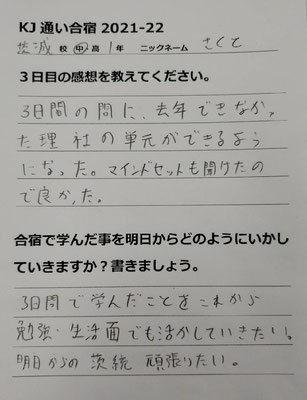 KJ 通い合宿 2021-22
茨城 校 中 高 1年 ニックネーム さくと
3日目の感想を教えてください。
3日間の間に、去年できなかっ
た理社の単元ができるよう
になった。マインドセットも聞けたの
で良かった。
合宿で学んだ事を明日からどのようにいかし
ていきますか?書きましょう。
3日間で学んだことをこれから
勉強・生活面でも活かしていきたい。
明日からの茨統 頑張りたい。